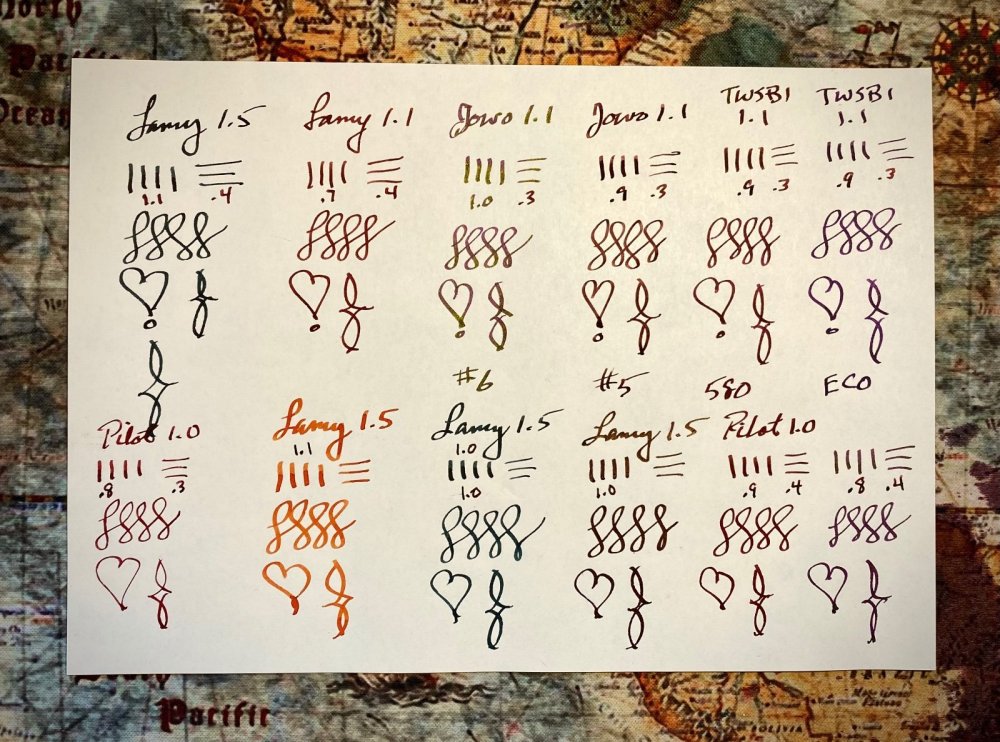 North
Pacific
Ocean
Lamy 1.5
Lamy 1.1
Jowo 1.1
Jowo 1.1
TWSBI
1.1
TWSBI
1.1
1.1 .4
.7 .4
1.0 .3
.9 .3
.9 .3
.9 .3
#6
#5
580
ECO
Pilot 1.0
Lamy 1.5
Lamy 1.5
Lamy 1.5
Pilot 1.0
.8 .3
1.1
1.0
1.0
1.0
.9 .4
.8 .4
Pacific
BOLIVIA